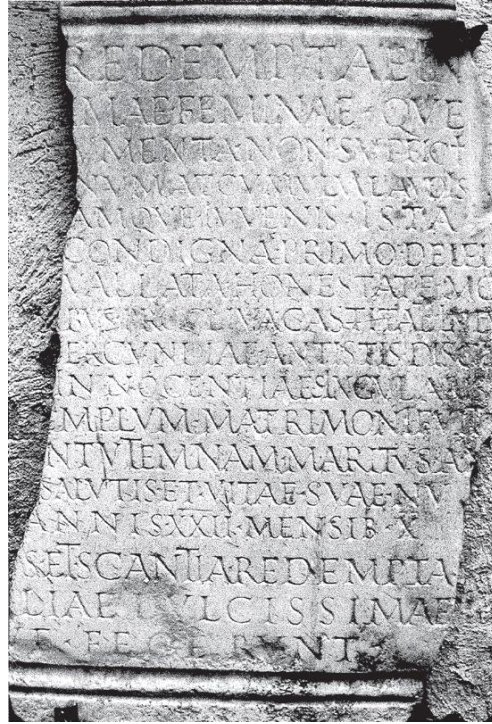 REDEMPTAE IN
MAE FEMINAE · QVE
VMENTA NON SVFFICI
NVM AT CVMVLVM LAVDIS
AMQVE IVVENIS · ISTA
CONDIGNA PRIMO
VALLATA HONESTATE MO
BVS
ERCVNDIAE ANTISTIS DIS
INNOCENTIAE SINGVLAR
MPLVM · MATRIMONI FVI
MARITVS A
SALVTIS ET · VITAE · SVAE · NV
ANNIS · XXII · MENSIB · X
S · ET SCANTIA · REDEMPTA
LIAE DVLCISSIMAE
T · FECERVNT